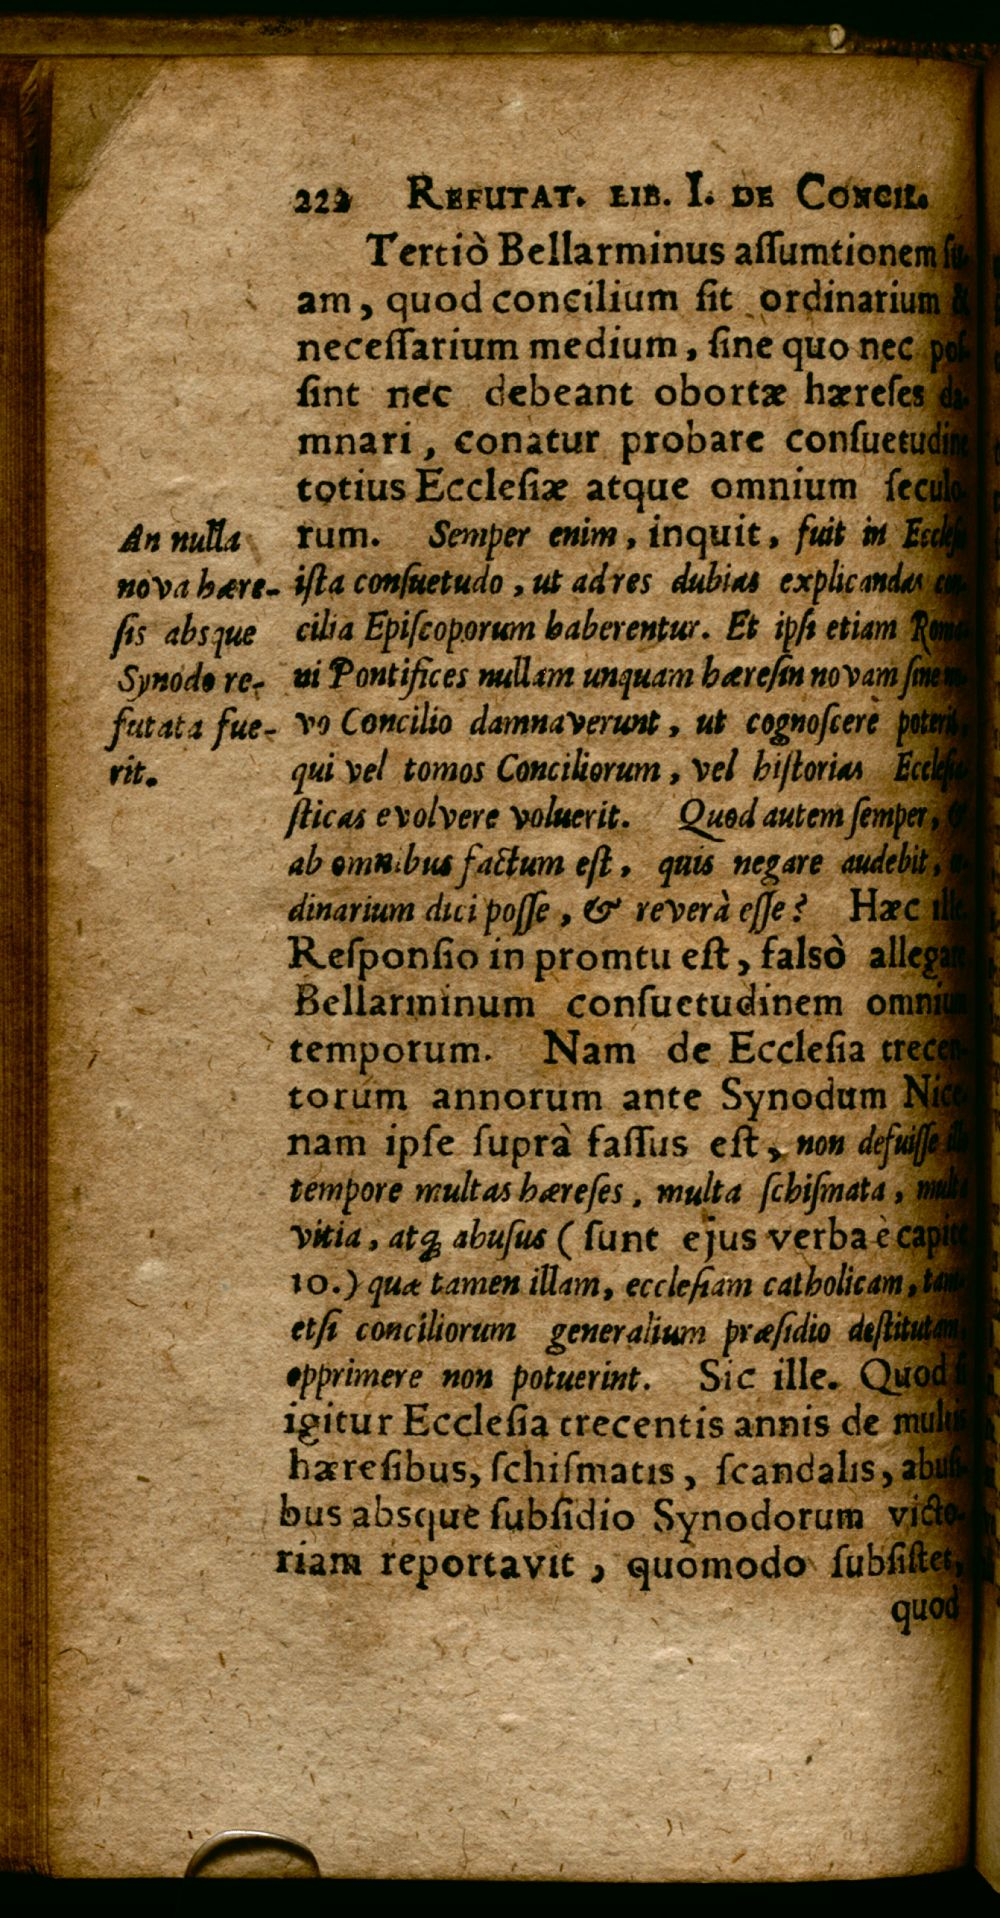 222 REFUTAT. LIB. I. DE CONCIL.
Tertiò Bellarminus aſſumtionem ſu-
am, quod concilium ſit ordinarium &
neceſſarium medium, ſine quo nec poſ-
ſint nec debeant obortæ hæreſes da-
mnari, conatur probare conſuetudine
totius Eccleſiæ atque omnium ſeculo-
rum. Semper enim, inquit, fuit in Eccleſia
iſta conſuetudo, ut ad res dubias explicandas con-
cilia Epiſcoporum haberentur. Et ipſi etiam Roma-
ni Pontifices nullam unquam hæreſin novam ſine no-
vo Concilio damnaverunt, ut cognoſcere poterit,
qui vel tomos Conciliorum, vel hiſtorias Eccleſia-
ſticas evolvere voluerit. Quod autem ſemper, &
ab omnibus factum eſt, quis negare audebit, or-
dinarium dici poſſe, & reverà eſſe? Hæc ille.
Reſponſio in promtu eſt, falsò allegare
Bellarminum conſuetudinem omnium
temporum. Nam de Eccleſia trecen-
torum annorum ante Synodum Nice-
nam ipſe ſuprà faſſus eſt, non defuiſſe illo
tempore multas hæreſes, multa ſchiſmata, multa
vitia, atq; abuſus (ſunt ejus verba è capite
10.) quæ tamen illam, eccleſiam catholicam, tam-
etſi conciliorum generalium præſidio deſtitutam,
opprimere non potuerint. Sic ille. Quod ſi
igitur Eccleſia trecentis annis de multis
hæreſibus, ſchiſmatis, ſcandalis, abuſi-
bus absque ſubſidio Synodorum victo-
riam reportavit, quomodo ſubſiſtet,
quod
An nulla
nova hære-
ſis absque
Synodo re-
futata fue-
rit.